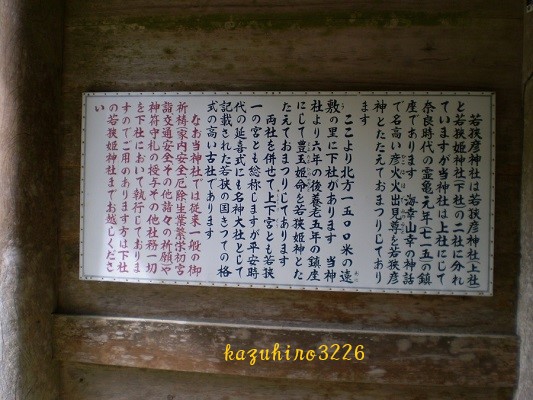 若狭彦神社は若狭彦神社(上社)
と若狭姫神社(下社)の二社に分れ
ていますが当神社は上社にして
奈良時代の霊亀元年(七一五)の鎮
座であります 海幸山幸の神話
で名高い彦火火出見尊を若狭彦
神とたたえておまつりしてあり
ます
ここより北方一五〇〇米の遠
敷の里に下社があります 当神
社より六年の後養老五年の鎮座
にして豊玉姫命を若狭姫神とた
たえておまつりしてあります
両社を併せて上下宮とも若狭
一の宮とも総称しますが平安時
代の延喜式にも名神大社として
記載された若狭の国きっての格
式の高い古社であります
なお当神社では従来一般の御
祈祷家内安全厄除生業繁栄初宮
詣交通安全その他諸々の祈願や
神符守札の授与その他社務一切
を下社において執行しておりま
すのでご用のあります方は下社
の若狭姫神社までお越しくださ
い
kazuhiro3226